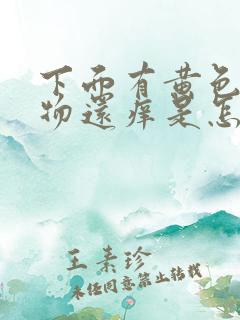 下面有黄色
物还痒是怎
王素珍
未经同意禁止转载